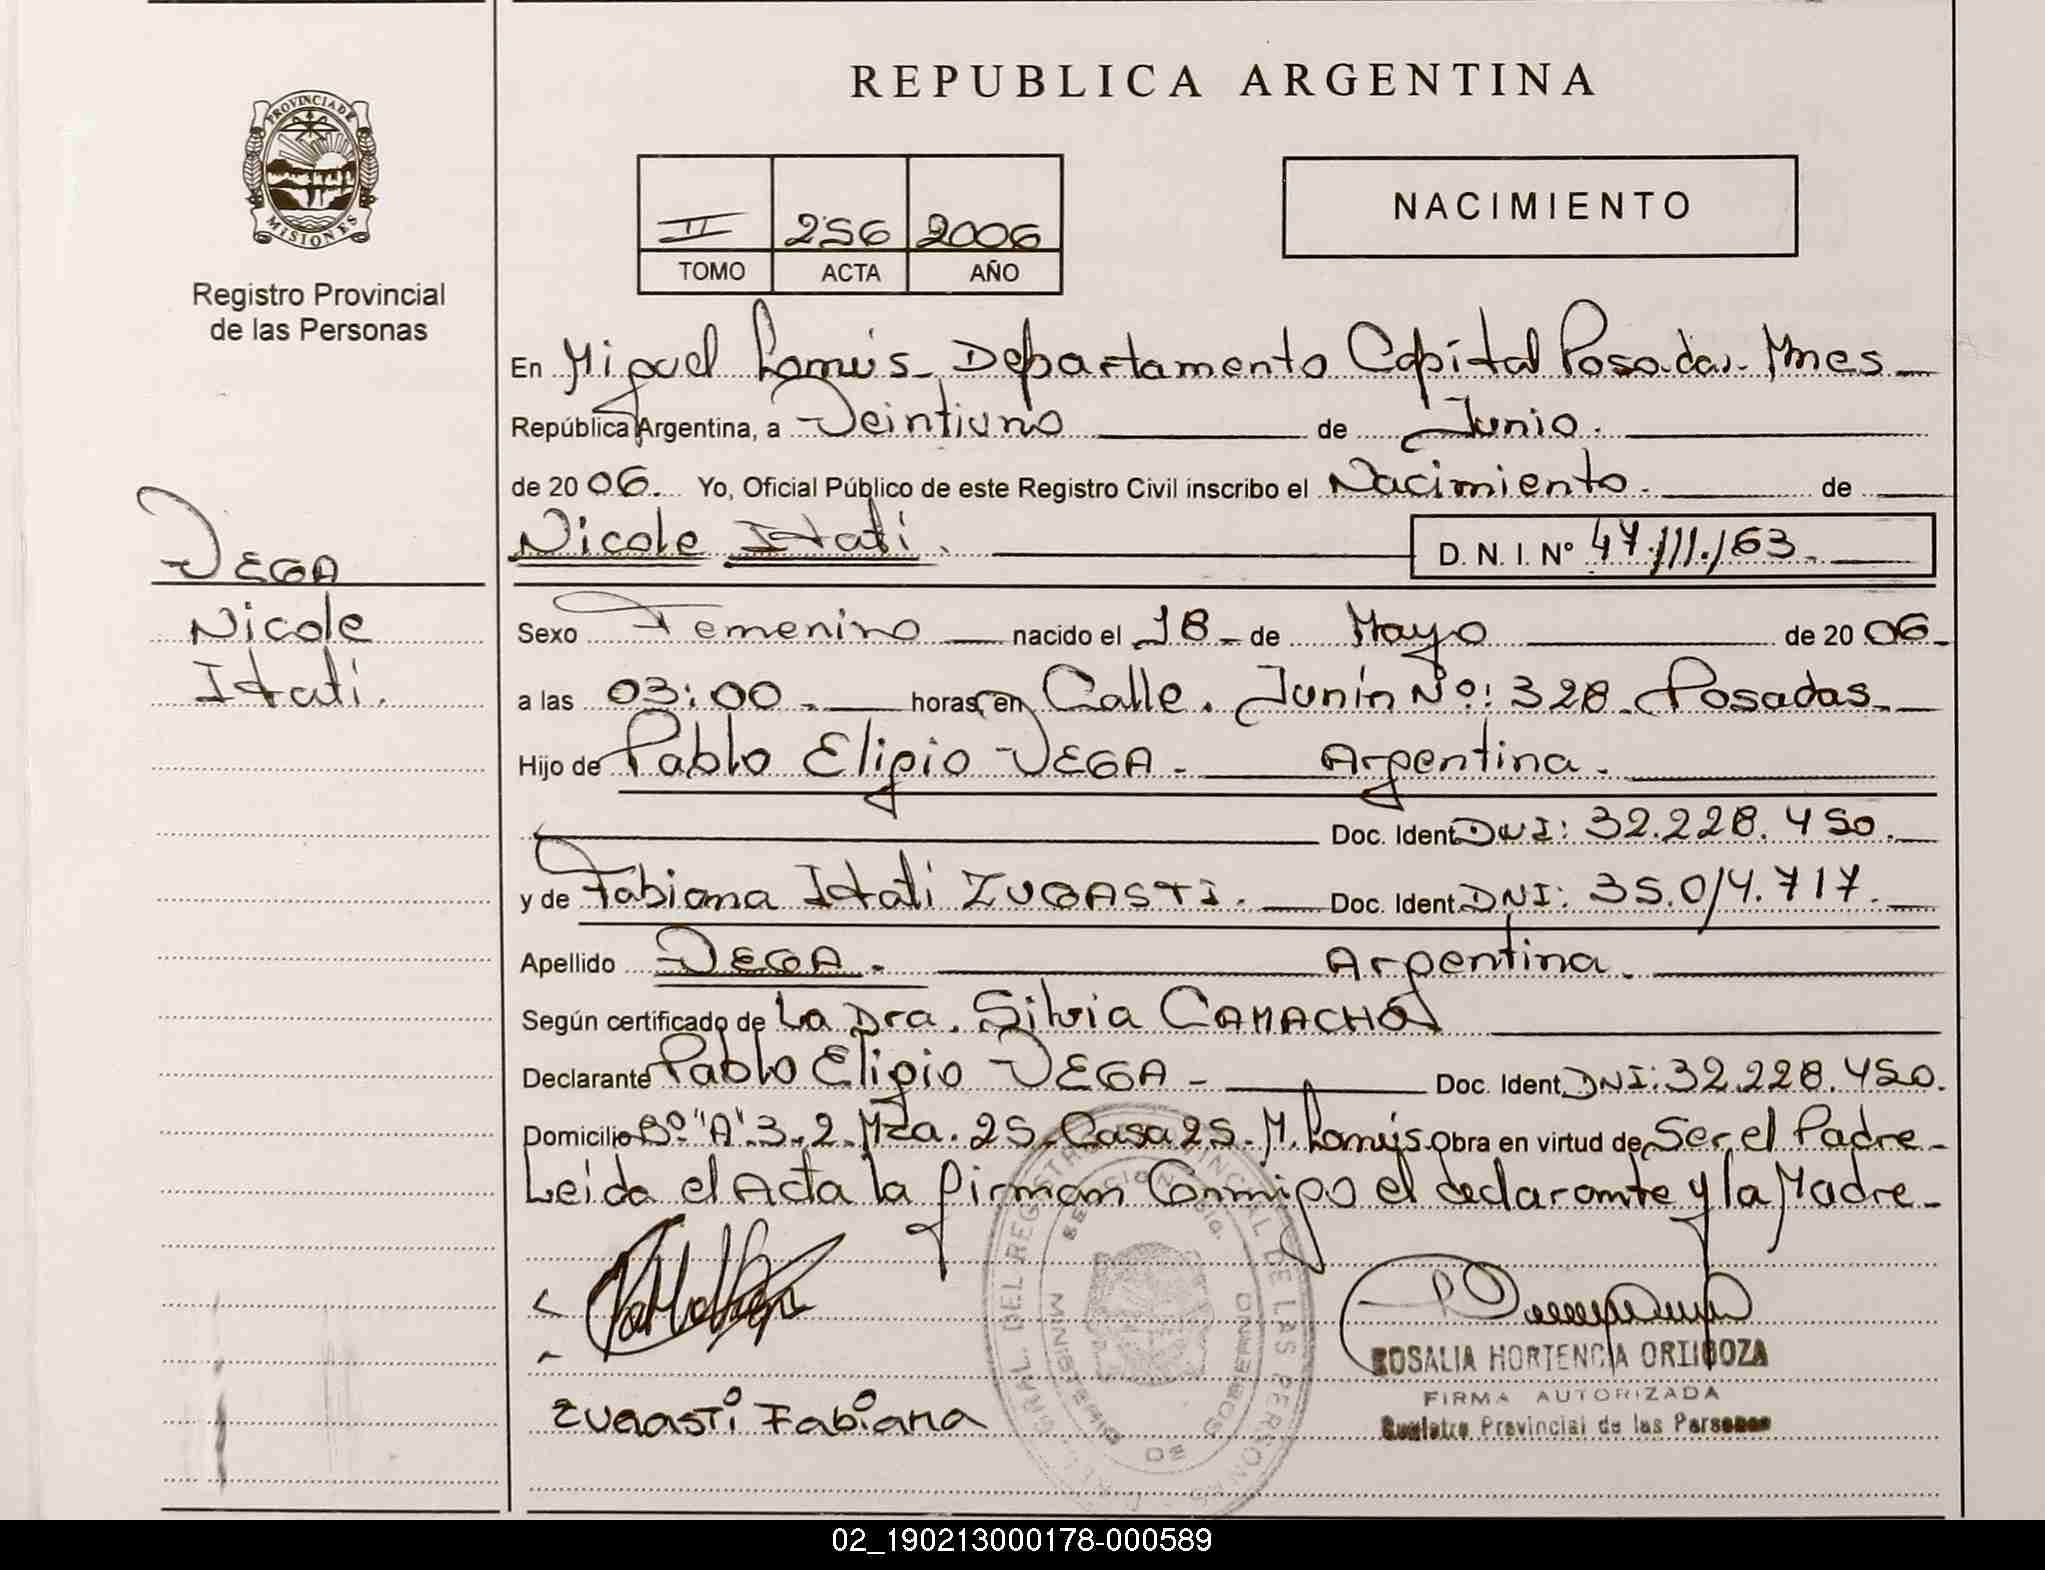 REPUBLICA ARGENTINA
PROVINCIA DE
MISIONES
Registro Provincial
de las Personas
II 256 2006
TOMO ACTA AÑO
NACIMIENTO
En Miguel Lanús - Departamento Capital Posadas - Mnes
República Argentina, a Veintiuno de Junio.
de 20 06. Yo, Oficial Público de este Registro Civil inscribo el Nacimiento. de
Nicole Itati. D. N. I. Nº 47.111.163.
VEGA
Nicole
Itati.
Sexo Femenino nacido el 18 - de Mayo de 20 06.
a las 03:00. horas, en Calle. Junín Nº: 328. Posadas.
Hijo de Pablo Eligio VEGA - Argentina.
Doc. Ident. DNI: 32.228.450.
y de Fabiana Itati ZUGASTI. Doc. Ident. DNI: 35.014.717.
Apellido VEGA. Argentina.
Según certificado de La Dra. Silvia CAMACHO
Declarante Pablo Eligio VEGA - Doc. Ident. DNI: 32.228.450.
Domicilio Bº "A" 3.2. Mza. 25. Casa 25. M. Lanús. Obra en virtud de Ser el Padre -
Leida el Acta la firman Conmigo el declarante y la Madre -
ZUGASTI FABIANA
ROSALIA HORTENCIA ORTIGOZA
FIRMA AUTORIZADA
Registro Provincial de las Personas
02_190213000178-000589